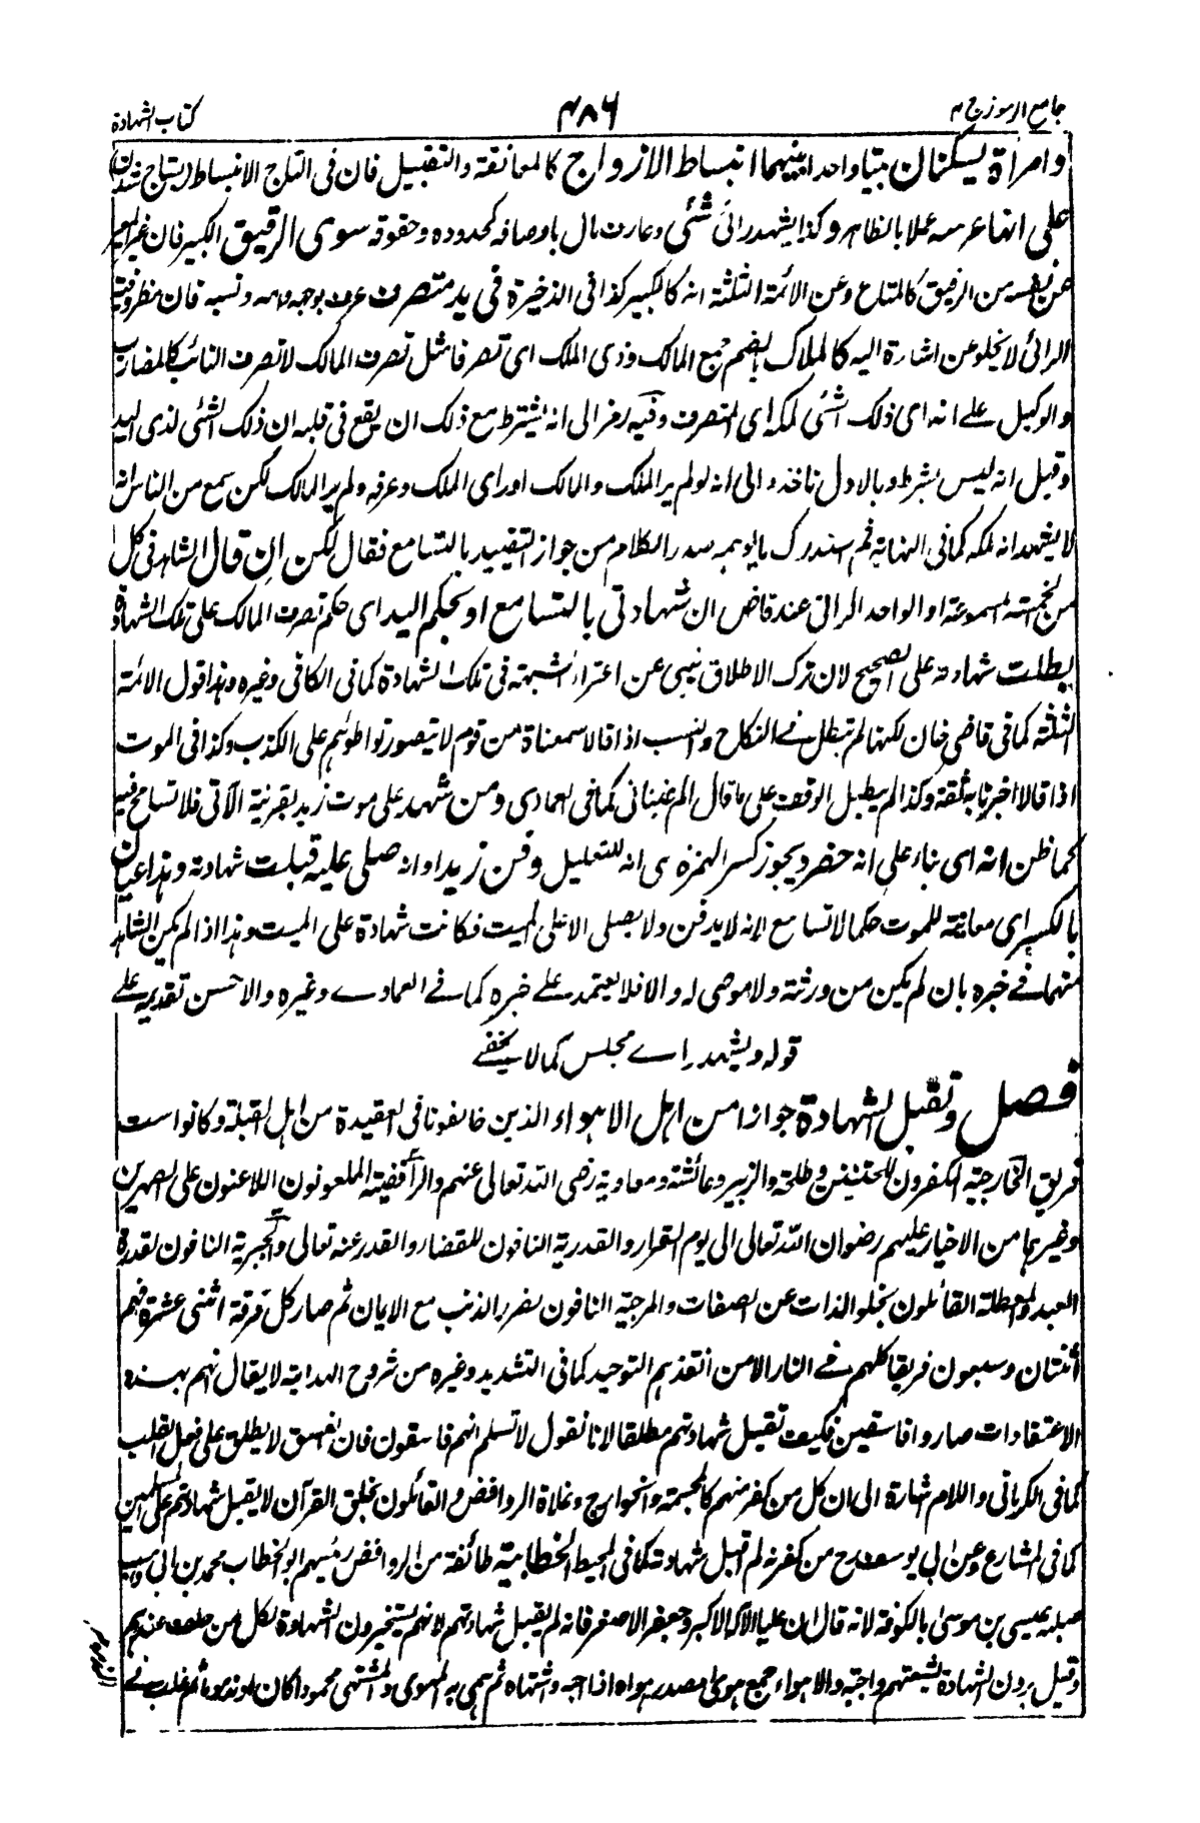 جامع الرموز ج ۲
۴۸۶
کتاب الشهادة
وامراة یسکنان بیتا واحدا بینهما انبساط الازواج کالمعانقة والتقبیل فان فی التاج الانبساط
علی انها عرسه عملا بالظاهر وکذا یشهد رائی شئی وعارف مال باوصافه کحدوده وحقوقه سوی الرقیق الکبیر فان غیر المعبر
عن نفسه من الرقیق کالمتاع وعن الائمة الثلثة انه کالکبیر کذا فی الذخیرة فی ید متصرف عرف بوجهه واسمه ونسبه فان
الرائی لا یخلو عن اشارة الیه کالملاک بالضم جمع المالک وذی الملک ای تصرفا مثل تصرف المالک لا تصرف النائب کالمضارب
والوکیل علی انه ای ذلک الشئی ملکه ای المتصرف وفیه رمز الی انه یشترط مع ذلک ان یقع فی قلبه ان ذلک الشئی لذی الید
وقیل انه لیس بشرط وبالاول ناخذ والی انه لو لم یر الملک والمالک او رای الملک وعرفه ولم یر المالک لکن سمع من الناس انه
لا یشهد انه ملکه کما فی النهایة ثم استدرک ما یوهمه صدر الکلام من جواز التقیید بالتسامع فقال لکن ان قال الشاهد فی کل
من الخمسة المسموعة او الواحد المرائی عند قاض ان شهادتی بالتسامع او بحکم الید ای حکم تصرف المالک علی تلک الشهادة
بطلت شهادته علی الصحیح لان ترک الاطلاق ینبی عن اعتراء شبهة فی تلک الشهادة کما فی الکافی وغیره وهذا قول الائمة
الثلثة کما فی قاضی خان لکنها لم تبطل فی النکاح والنسب اذا قالا سمعناه من قوم لا یتصور تواطؤهم علی الکذب وکذا فی الموت
اذا قالا اخبرنا به ثقة وکذا لم یبطل الوقف علی ما قال المرغینانی کما فی العمادی ومن شهد علی موت زید بقرینة الآتی فلا تسامح فیه
کما ظن انه ای بناء علی انه حضر ویجوز کسر الهمزة ای انه للتعلیل دفن زید او انه صلی علیه قبلت شهادته وهذا عیان
بالکسر ای معاینة للموت حکما لا تسامع لانه لا یدفن ولا یصلی الا علی المیت فکانت شهادة علی المیت وهذا اذا لم یکن الشاهد
متهما فی خبره بان لم یکن من ورثته ولا موصی له والا فلا یعتمد علی خبره کما فی العمادی وغیره والاحسن تقدیمه علی
قوله ویشهد رای مجلس کما لا یخفی
فصل وتقبل الشهادة جوازا من اهل الاهواء الذین خالفونا فی العقیدة من اهل القبلة وکانوا ست
فریق الخارجیة المکفرون للختنین وطلحة والزبیر وعائشة ومعاویة رضی الله تعالی عنهم والرافضیة الملعونون اللاعنون علی الصهرین
وغیرهما من الاخیار علیهم رضوان الله تعالی الی یوم القرار والقدریة النافون للقضاء والقدر عنه تعالی والجبریة النافون لقدرة
العبد والمعطلة القائلون بخلو الذات عن الصفات والمرجیة النافون لضرر الذنب مع الایمان ثم صار کل فرقة اثنی عشرة فهم
اثنتان وسبعون فریقا کلهم فی النار الا من انقذهم التوحید کما فی التشدید وغیره من شروح الهدایة لا یقال انهم بهذه
الاعتقادات صاروا فاسقین فکیف تقبل شهادتهم مطلقا لانا نقول لا نسلم انهم فاسقون فان الفسق لا یطلق علی فعل القلب
کما فی الکرمانی واللام اشارة الی ان کل من کفر منهم کالمجسمة والخوارج وغلاة الروافض والقائلون بخلق القرآن لا یقبل شهادتهم علی المسلمین
کما فی المشارع وعن ابی یوسف رح من کفرته لم اقبل شهادته کما فی المحیط الا الخطابیة طائفة من الروافض رئیسهم ابو الخطاب محمد بن ابی وهیب
صلبه عیسی بن موسی بالکوفة لانه قال ان علیا الاله الاکبر وجعفر الاصغر فانه لم یقبل شهادتهم لانهم یستجیزون الشهادة لکل من حلف عندهم
وقیل یرون الشهادة لشیعتهم واجبة والاهواء جمع هوی مصدر هواه اذا احبه واشتهاه ثم سمی به المهوی والمشتهی محمودا کان او مذموما ثم غلب فی
المذموم